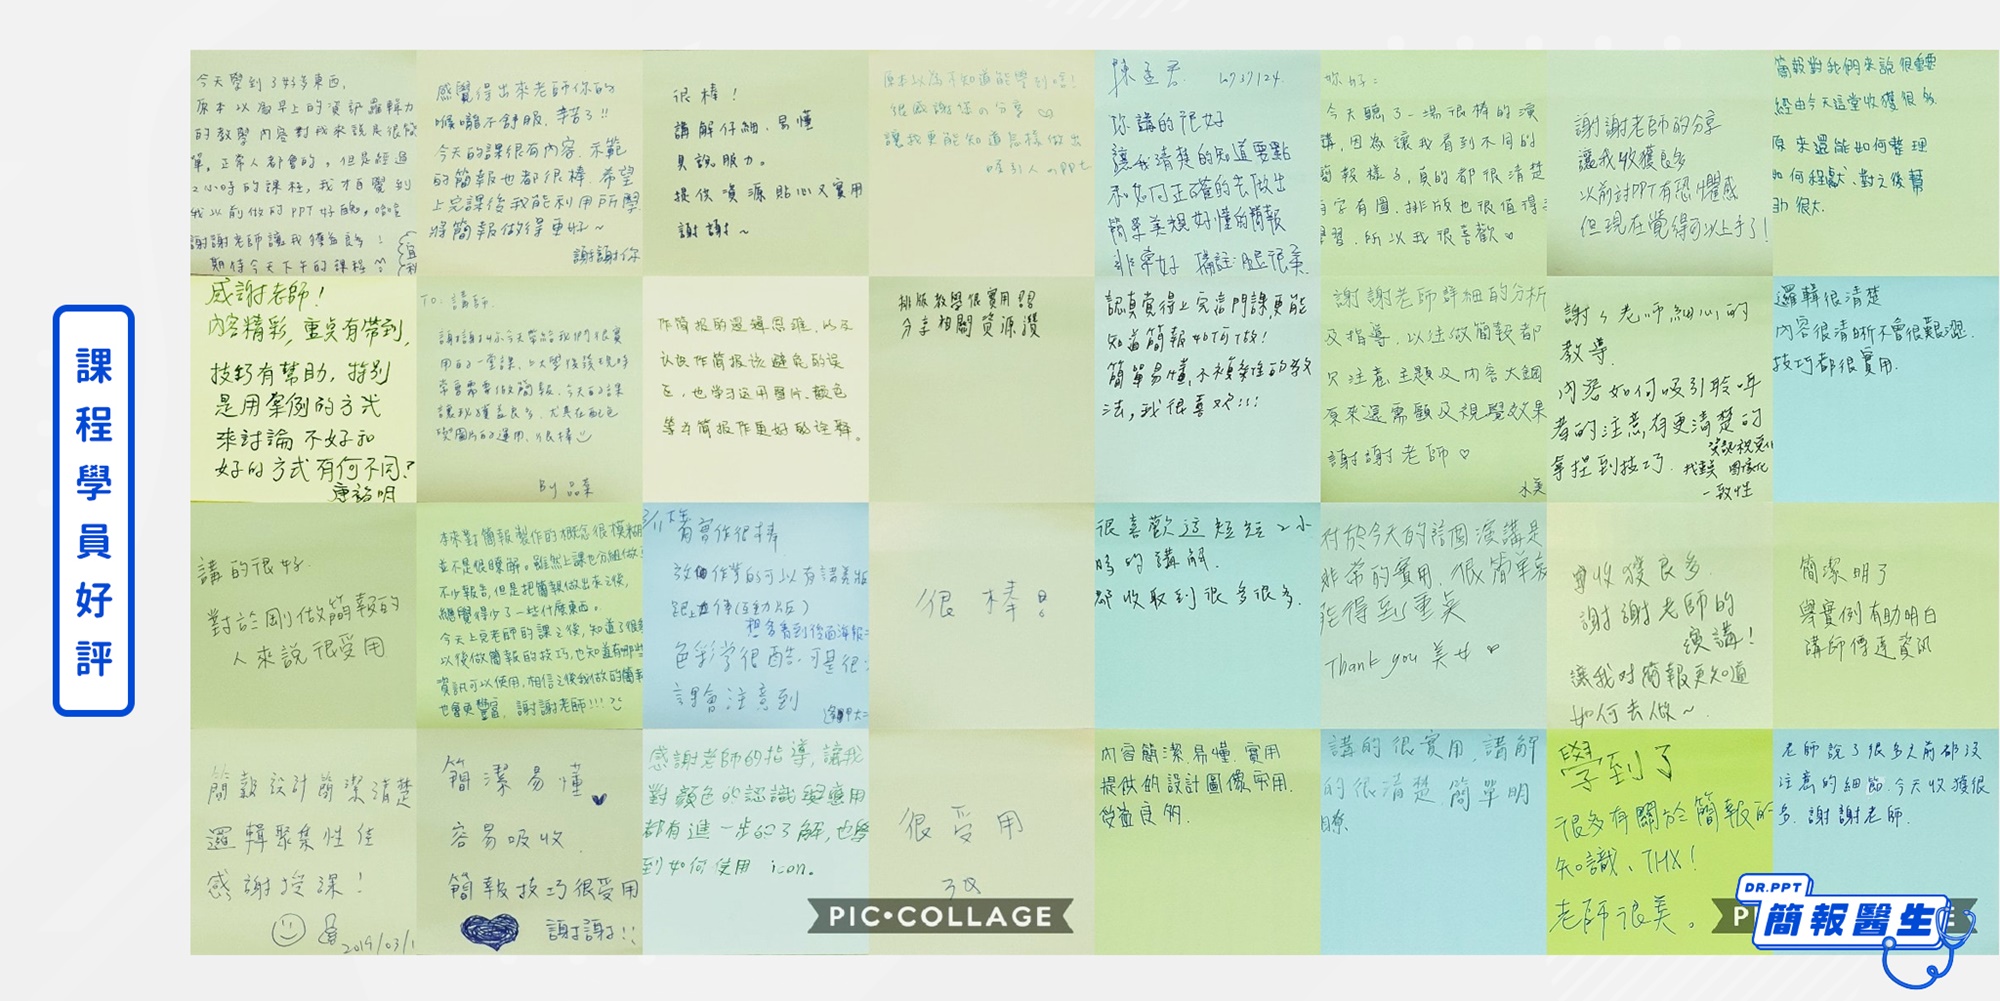 課程學員好評
今天學到了好多東西,
原本以為早上的資訊邏輯力
的教學內容對我來說是很簡
單,正常人都會的,但是經過
2小時的課程,我才百覺到
我以前做的PPT好醜,哈哈
謝謝老師讓我獲益良多!
期待今天下午的課程
感覺得出來老師你的
喉嚨不舒服,辛苦了!!
今天的課很有內容,示範
的簡報也都很棒,希望
上完課後我能利用所學
將簡報做得更好~
謝謝你
很棒!
講解仔細、易懂
具說服力。
提供資源貼心又實用
謝謝~
原本以為不知道能學到啥!
很感謝您の分享♡
讓我更能知道怎樣做出
嚇到人のPPT
陳孟君
你講的很好
讓我清楚的知道要點
和如何正確的去做出
簡單美觀好懂的簡報
非常好 備註:腿很美
你好:
今天聽了一場很棒的演
講,因為讓我看到不同的
簡報樣子,真的都很清楚
有字有圖,排版也很值得
學習,所以我很喜歡♥
謝謝老師的分享
讓我收獲良多
以前對PPT有恐懼感
但現在覺得可以上手了!
簡報對我們來說很重要
經由今天這堂收獲很多
原來還能如何整理
如何程獻、對之後幫
助很大.
感謝老師!
內容精彩,重點有帶到,
技巧有幫助,特別
是用案例的方式
來討論不好和
好的方式有何不同?
TO:講師
謝謝妳今天帶給我們很實
用的一堂課,上大學後發現時
常會需要做簡報,今天的課
讓我獲益良多,尤其在配色
與圖片的運用,很棒
By 品蓁
作简报的逻辑思维,以及
认识作简报该避免的误
区,也学习运用图片、颜色
等为简报作更好的诠释。
排版教學很實用
分享相關資源讚
認真覺得上完這門課更能
知道簡報如何做!
簡單易懂,不複雜的教
法,我很喜歡!!!
謝謝老師詳細的分析
及指導,以往做簡報都
只注意主題及內容大綱
原來還需顧及視覺效果
謝謝老師♡
謝謝老師細心的
教導.
內容如何吸引聆聽
者的注意,有更清楚的
拿捏到技巧.
一致性
邏輯很清楚
內容很清晰不會很艱澀.
技巧都很實用.
講的很好.
對於剛做簡報的
人來說很受用
本來對簡報製作的概念很模糊
並不是很瞭解。雖然上課也分組做
不少報告,但是把簡報做出來之後,
總覺得少了一些什麼東西。
今天上完老師的課之後,知道了很多
以後做簡報的技巧,也知道有哪些
資訊可以使用,相信之後我做的簡報
也會更豐富,謝謝老師!!!
色彩學很酷,可是很
課會注意到
很棒!
很喜歡這短短2小
時的講解.
都收取到很多很多.
對於今天的這個演講是
非常的實用,很簡單
能得到重點
Thank you 美女♥
收獲良多.
謝謝老師的
演講!
讓我对簡報更知道
如何去做~
簡潔明了
舉實例有助明白
講師傳達資訊
簡報設計簡潔清楚
邏輯聚集性佳
感謝授課!
2019/03/1
簡潔易懂
容易吸收
簡報技巧很受用
謝謝!!
感謝老師的指導,讓我
對顏色的認識與應用
都有進一步的了解,也學
到如何使用icon.
很受用
內容簡潔、易懂、實用
提供的設計圖像實用.
受益良多.
講的很實用,講解
的很清楚,簡單明
瞭.
學到了
很多有關於簡報的
知識、THX!
老師很美。
老師說了很多之前都沒
注意的細節,今天收獲很
多,謝謝老師.
PIC•COLLAGE
DR.PPT
簡報醫生